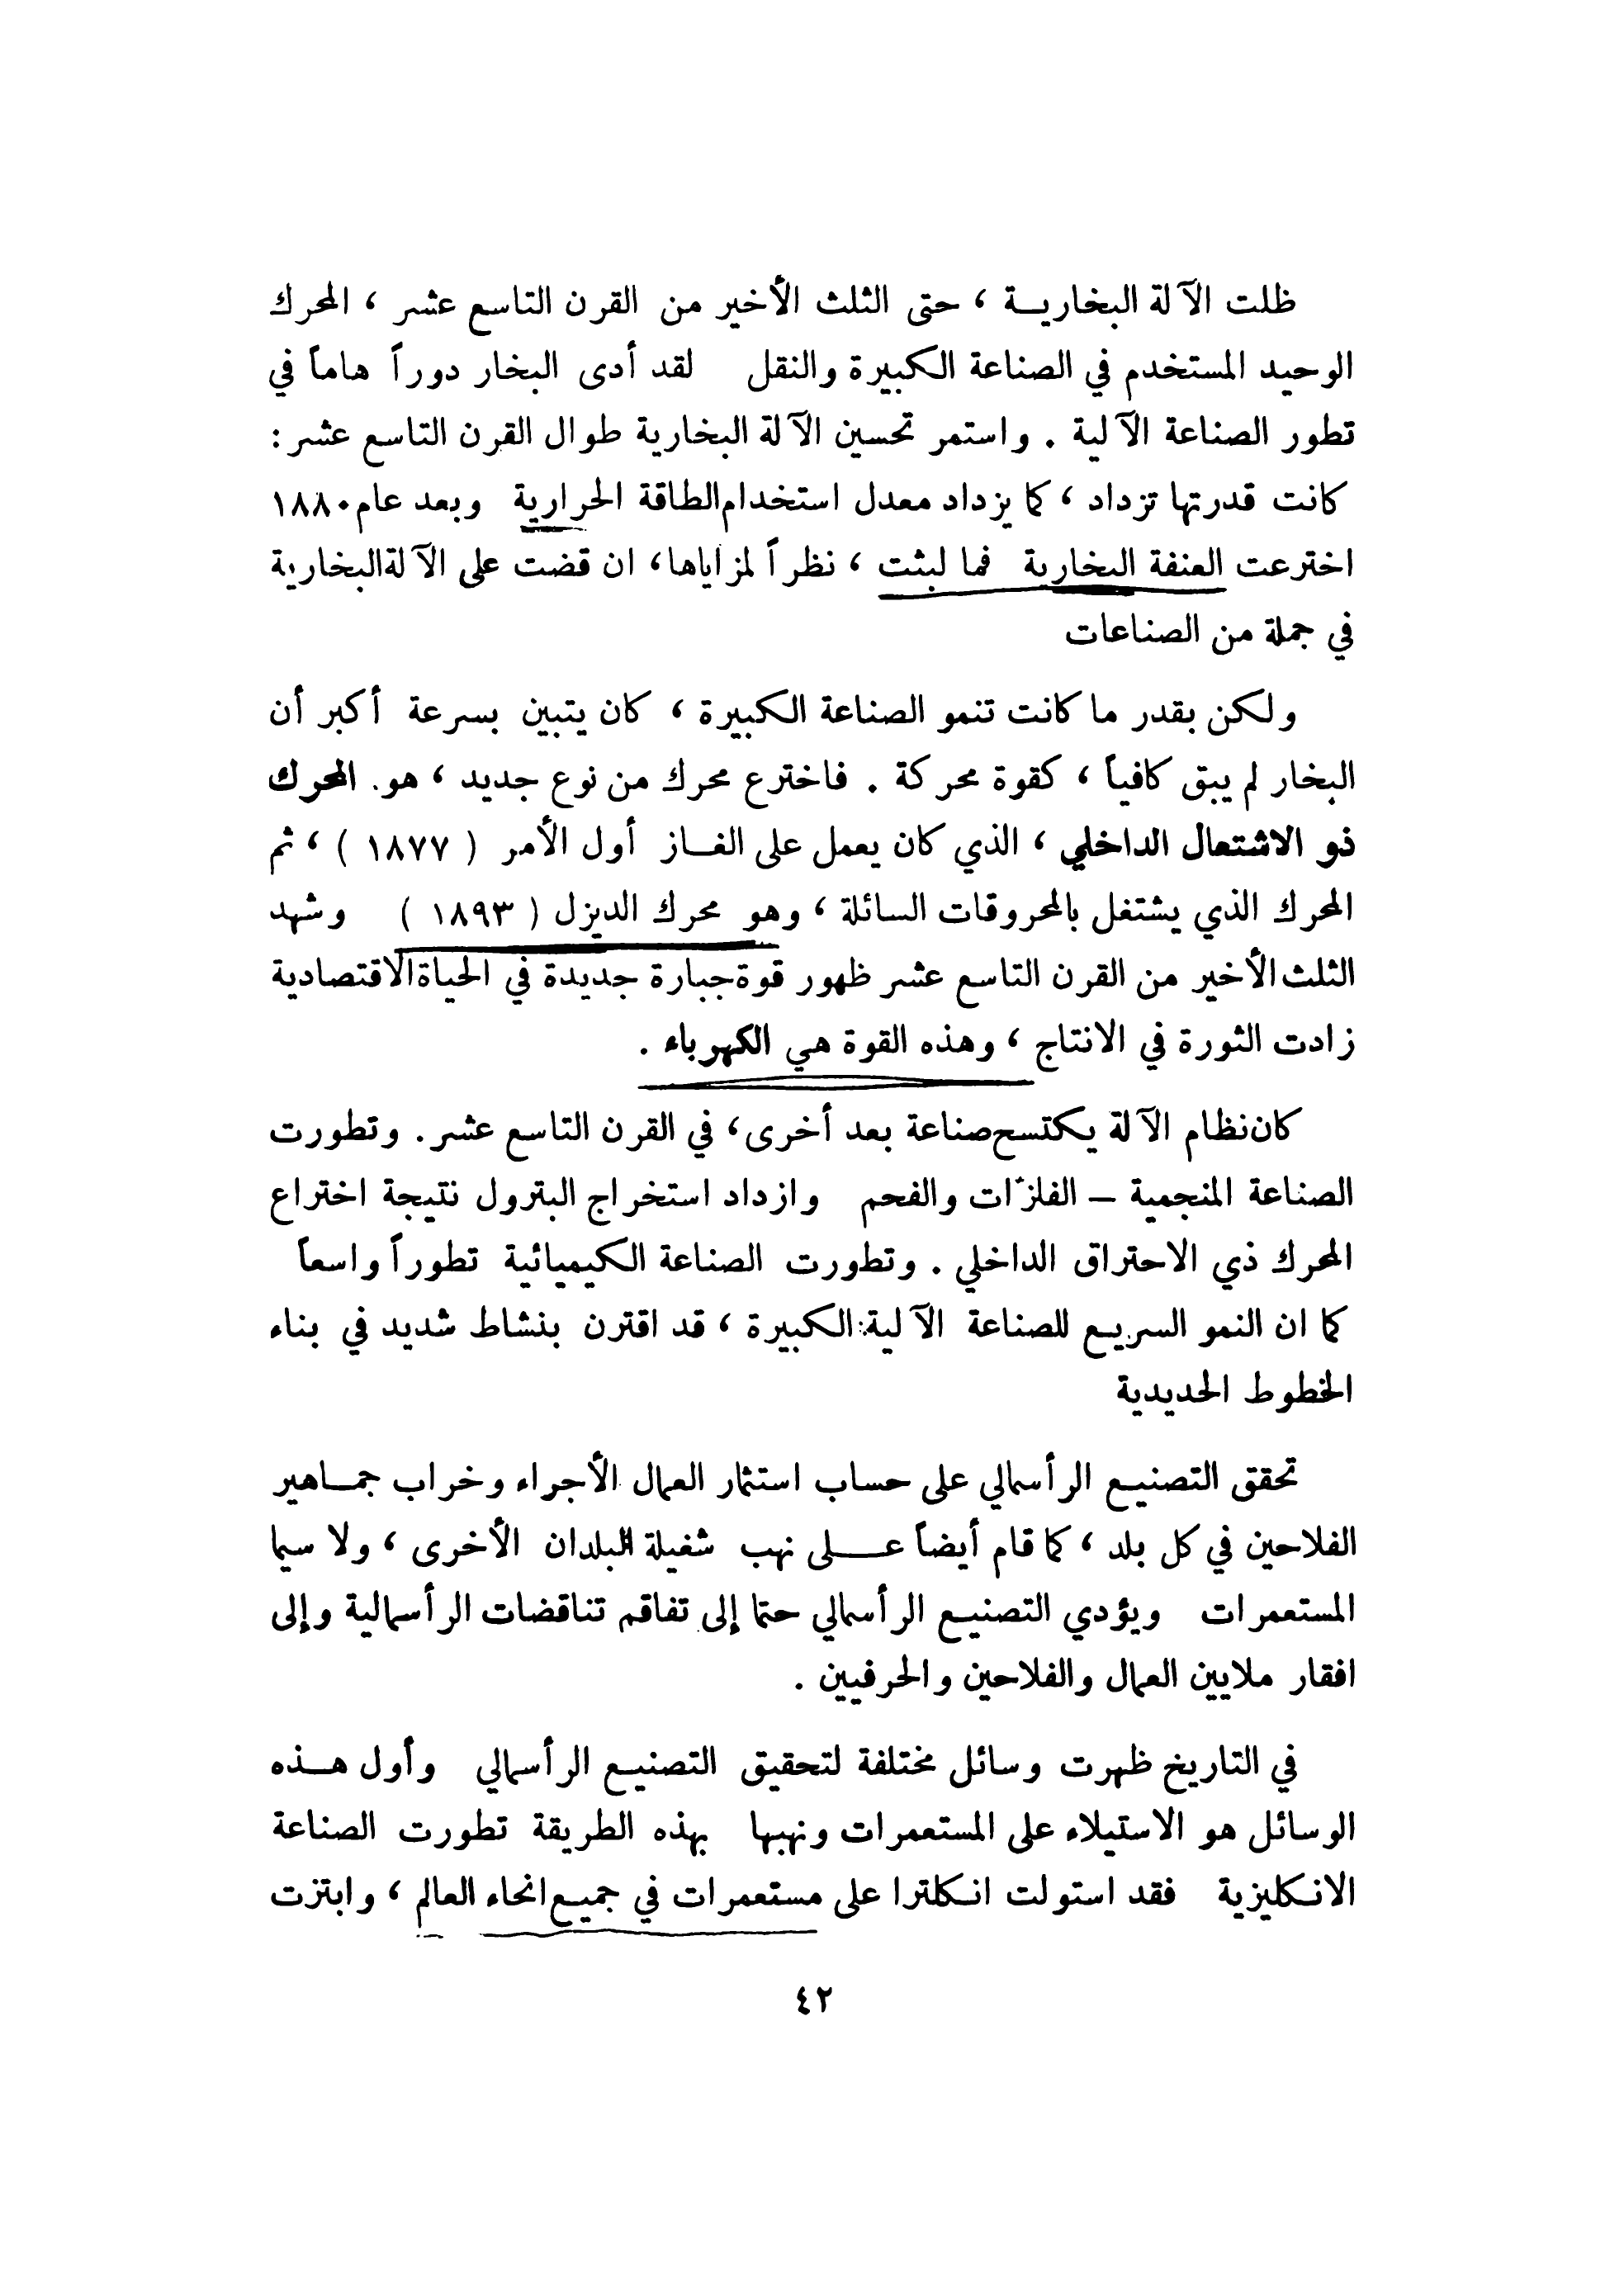 ظلت الآلة البخارية ، حتى الثلث الأخير من القرن التاسع عشر ، المحرك
الوحيد المستخدم في الصناعة الكبيرة والنقل لقد أدى البخار دوراً هاماً في
تطور الصناعة الآلية . واستمر تحسين الآلة البخارية طوال القرن التاسع عشر :
كانت قدرتها تزداد ، كما يزداد معدل استخدام الطاقة الحرارية وبعد عام ١٨٨٠
اخترعت العنفة البخارية فما لبثت ، نظراً لمزاياها ، ان قضت على الآلة البخارية
في جملة من الصناعات
ولكن بقدر ما كانت تنمو الصناعة الكبيرة ، كان يتبين بسرعة أكبر أن
البخار لم يبق كافياً ، كقوة محركة . فاخترع محرك من نوع جديد ، هو المحرك
ذو الاشتعال الداخلي ، الذي كان يعمل على الغاز أول الأمر ( ١٨٧٧ ) ، ثم
المحرك الذي يشتغل بالمحروقات السائلة ، وهو محرك الديزل ( ١٨٩٣ ) وشهد
الثلث الأخير من القرن التاسع عشر ظهور قوة جبارة جديدة في الحياة الاقتصادية
زادت الثورة في الانتاج ، وهذه القوة هي الكهرباء .
كان نظام الآلة يكتسح صناعة بعد أخرى ، في القرن التاسع عشر . وتطورت
الصناعة المنجمية – الفلزّات والفحم وازداد استخراج البترول نتيجة اختراع
المحرك ذي الاحتراق الداخلي . وتطورت الصناعة الكيميائية تطوراً واسعاً
كما ان النمو السريع للصناعة الآلية الكبيرة ، قد اقترن بنشاط شديد في بناء
الخطوط الحديدية
تحقق التصنيع الرأسمالي على حساب استثمار العمال الأجراء وخراب جماهير
الفلاحين في كل بلد ، كما قام أيضاً على نهب شغيلة البلدان الأخرى ، ولا سيما
المستعمرات ويؤدي التصنيع الرأسمالي حتما إلى تفاقم تناقضات الرأسمالية وإلى
افقار ملايين العمال والفلاحين والحرفيين .
في التاريخ ظهرت وسائل مختلفة لتحقيق التصنيع الرأسمالي وأول هذه
الوسائل هو الاستيلاء على المستعمرات ونهبها بهذه الطريقة تطورت الصناعة
الانكليزية فقد استولت انكلترا على مستعمرات في جميع انحاء العالم ، وابتزت
٤٢